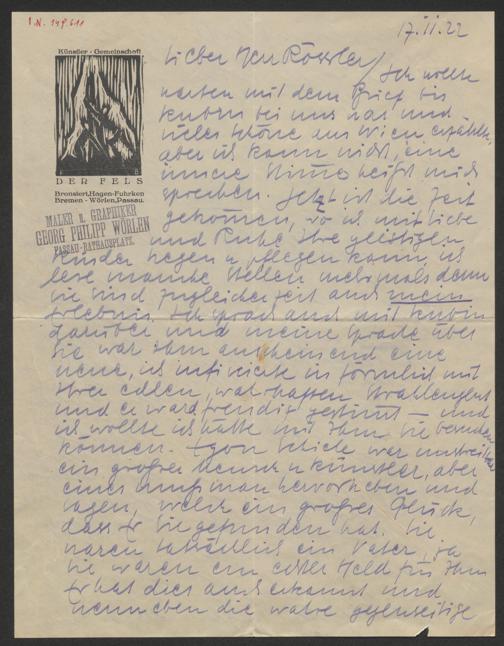 I.N. 149.611
17.II.22
Künstler-Gemeinschaft
DER FELS
Bronsiert, Hagen-Fuhrken
Bremen - Wörlen, Passau.
MALER u. GRAPHIKER
GEORG PHILIPP WÖRLEN
PASSAU-RATHAUSPLATZ.
Lieber Herr Rössler, Ich wollte
warten mit dem Brief bis
Kubin bei uns war und
vieles schöne aus Wien erzählte,
aber ich kann nicht, eine
innere Stimme heißt mich
sprechen. Jetzt ist die Zeit
gekommen, wo ich mit Liebe
und Ruhe Ihre geistigen
Kinder hegen u. pflegen kann, ich
lese manche Stellen mehrmals denn
sie sind zugleicher Zeit auch mein
Erlebnis. Ich sprach auch mit Kubin
darüber und meine Sprache über
Sie war ihm anscheinend eine
neue, ich infizierte ihn förmlich mit
Ihrer edlen, wahrhaften
und er ward freudig gestimmt – und
ich wollte ich hätte mit ihm Sie
können. – Egon Schiele war
ein großer Mensch u. Künstler, aber
eines muß man hervorheben und
sagen, welch ein großes Glück,
dass Er Sie gefunden hat. Sie
waren tatsächlich ein Vater, ja
Sie waren ein echter Held für ihn
Er hat dies auch erkannt und
neuneben die wahre gegenseitige